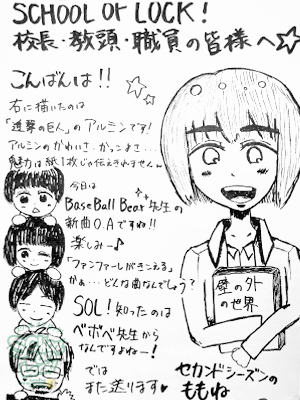 SCHOOL OF LOCK!
校長・教頭・職員の皆様へ☆
こんばんは!!
右に描いたのは
「進撃の巨人」のアルミンです!
アルミンのかわいさ・かっこよさ…
魅力は紙1枚じゃ伝えきれません〜
今日は
BaseBall Bear先生の
新曲O.Aですね!!
楽しみー♪
「ファンファーレがきこえる」
かぁ…どんな曲なんでしょう?
SOL!知ったのは
ベボベ先生から
なんですよねー!
では
また送ります♥
壁の外
の世界
セカンドシーズンの
ももね